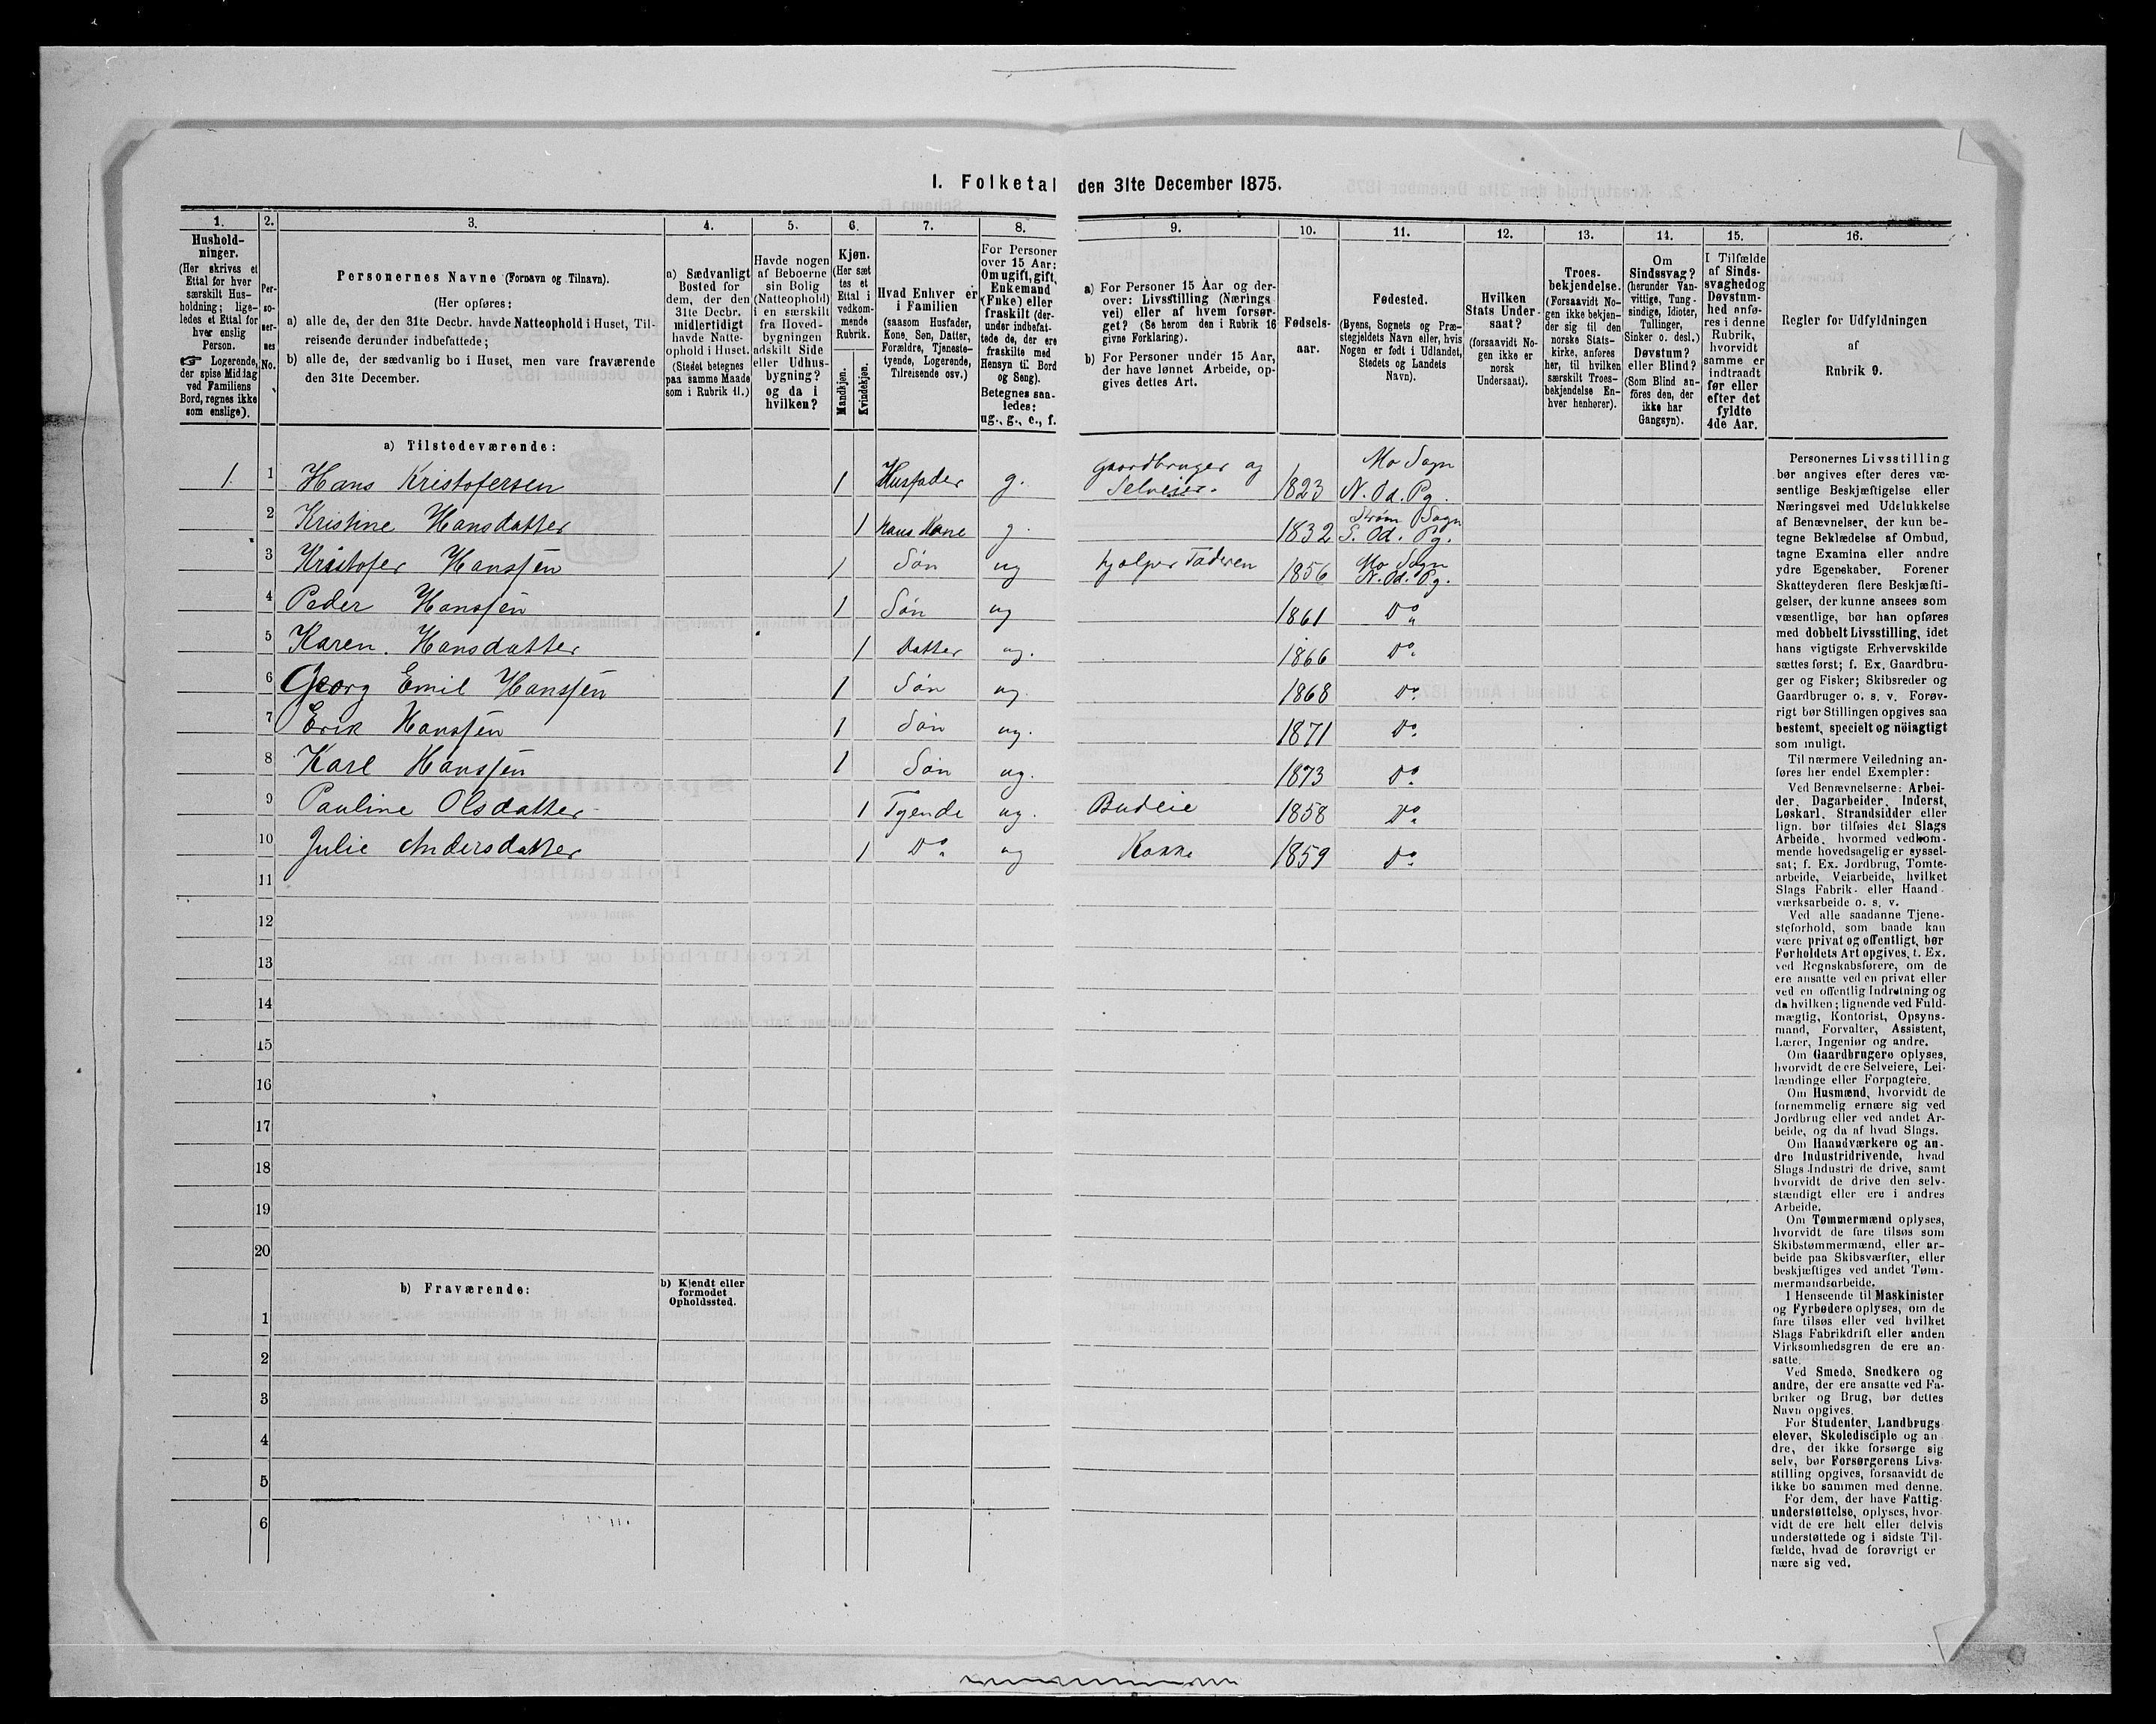 I. Folketal den 31te December 1875.
1. 2. 3. 4. 5. 6. 7. 8. 9. 10. 11. 12. 13. 14. 15. 16.
Hushold-
ninger.
(Her skrives et
Ettal for hver
særskilt Hus-
holdning; lige-
ledes et Ettal for
hver enslig
Person.
☞ Logerende,
der spise Middag
ved Familiens
Bord, regnes ikke
som enslige).
Per-
so-
ner-
nes
No.
Personernes Navne (Fornavn og Tilnavn).
(Her opføres:
a) alle de, der den 31te Decbr. havde Natteophold i Huset, Til-
reisende derunder indbefattede;
b) alle de, der sædvanlig bo i Huset, men vare fraværende
den 31te December.
a) Sædvanligt
Bosted for
dem, der den
31te Decbr.
midlertidigt
havde Natte-
ophold i Huset.
(Stedet betegnes
paa samme Maade
som i Rubrik 11.)
Havde nogen
af Beboerne
sin Bolig
(Natteophold)
i en særskilt
fra Hoved-
bygningen
adskilt Side
eller Udhus-
bygning?
og da i
hvilken?
Kjøn.
(Her sæt
tes et
Ettal i
vedkom-
mende
Rubrik.
Mandkjøn.
Kvindekjøn.
Hvad Enhver er
i Familien
(saasom Husfader,
Kone, Søn, Datter,
Forældre, Tjeneste-
tyende, Logerende,
Tilreisende osv.)
For Personer
over 15 Aar:
Om ugift, gift,
Enkemand
(Enke) eller
fraskilt (der-
under indbefat-
tede de, der ere
fraskilte med
Hensyn til Bord
og Seng).
Betegnes saa-
ledes:
ug., g., e., f.
a) For Personer 15 Aar og der-
over: Livsstilling (Nærings
vei) eller af hvem forsør-
get? (Se herom den i Rubrik 16
givne Forklaring).
b) For Personer under 15 Aar,
der have lønnet Arbeide, op-
gives dettes Art.
Fødsels-
aar.
Fødested.
(Byens, Sognets og Præ-
stegjeldets Navn eller, hvis
Nogen er født i Udlandet,
Stedets og Landets
Navn).
Hvilken
Stats Under-
saat?
(forsaavidt No-
gen ikke er
norsk
Undersaat).
Troes-
bekjendelse.
(Forsaavidt No-
gen ikke bekjen-
der sig til den
norske Stats-
kirke, anføres
her, til hvilken
særskilt Troes-
bekjendelse En-
hver henhører).
Om
Sindssvag?
(herunder Van-
vittige, Tung-
sindige, Idioter,
Tullinger,
Sinker o. desl.)
Døvstum?
eller Blind?
(Som Blind an-
føres den, der
ikke har
Gangsyn).
I Tilfælde
af Sinds-
svaghed og
Døvstum-
hed anfø-
res i denne
Rubrik,
hvorvidt
samme er
indtraadt
før eller
efter det
fyldte
4de Aar.
Regler for Udfyldningen
af
Rubrik 9.
a) Tilstedeværende:
1. 1 Hans Kristofersen 1 Husfader g. Gaardbruger og Selveier. 1823 Mo Sogn N. Od. Pg.
2 Kristine Hansdatter 1 hans Kone g. 1832 Strøm Sogn S. Od. Pg.
3 Kristofer Hanssen 1 Søn ug hjælper Faderen 1856 Mo Sogn N. Od. Pg.
4 Peder Hanssen 1 Søn ug 1861 Do
5 Karen Hansdatter 1 Datter ug. 1866 Do
6 Georg Emil Hanssen 1 Søn ug. 1868 Do
7 Erik Hanssen 1 Søn ug. 1871 Do
8 Karl Hanssen 1 Søn ug. 1873 Do
9 Pauline Olsdatter 1 Tyende ug. Budeie 1858 Do
10 Julie Andersdatter 1 Do ug Kokke 1859 Do
11
12
13
14
15
16
17
18
19
20
b) Fraværende:
b) Kjendt eller
formodet
Opholdssted.
1
2
3
4
5
6
Personernes Livsstilling
bør angives efter deres væ-
sentlige Beskjæftigelse eller
Næringsvei med Udelukkelse
af Benævnelser, der kun be-
tegne Beklædelse af Ombud,
tagne Examina eller andre
ydre Egenskaber. Forener
Skatteyderen flere Beskjæfti-
gelser, der kunne ansees som
væsentlige, bør han opføres
med dobbelt Livsstilling, idet
hans vigtigste Erhvervskilde
sættes først; f. Ex. Gaardbru-
ger og Fisker; Skibsreder og
Gaardbruger o. s. v. Forøv-
rigt bør Stillingen opgives saa
bestemt, specielt og nöiagtigt
som muligt.
Til nærmere Veiledning an-
føres her endel Exempler:
Ved Benævnelserne: Arbei-
der, Dagarbeider, Inderst,
Løskarl, Strandsidder eller
lign. bør tilføies det Slags
Arbeide, hvormed vedkom-
mende hovedsagelig er syssel-
sat; f. Ex. Jordbrug, Tomte-
arbeide, Veiarbeide, hvilket
Slags Fabrik- eller Haand-
værksarbeide o. s. v.
Ved alle saadanne Tjene-
steforhold, som baade kan
være privat og offentligt, bør
Forholdets Art opgives, t. Ex.
ved Regnskabsførere, om de
ere ansatte ved en privat eller
ved en offentlig Indretning og
da hvilken; lignende ved Fuld-
mægtig, Kontorist, Opsyns-
mand, Forvalter, Assistent,
Lærer, Ingeniør og andre.
Om Gaardbrugere oplyses,
hvorvidt de ere Selveiere, Lei-
lændinge eller Forpagtere.
Om Husmænd, hvorvidt de
fornemmelig ernære sig ved
Jordbrug eller ved andet Ar-
beide, og da af hvad Slags.
Om Haandværkere og an-
dre Industridrivende, hvad
Slags Industri de drive, samt
hvorvidt de drive den selv-
stændigt eller ere i andres
Arbeide.
Om Tømmermænd oplyses,
hvorvidt de fare tilsøs som
Skibstømmermænd, eller ar-
beide paa Skibsværfter, eller
beskjæftiges ved andet Tøm-
mermandsarbeide.
I Henseende til Maskinister
og Fyrbødere oplyses, om de
fare tilsøs eller ved hvilket
Slags Fabrikdrift eller anden
Virksomhedsgren de ere an-
satte.
Ved Smede, Snedkere og
andre, der ere ansatte ved Fa-
briker og Brug, bør dettes
Navn opgives.
For Studenter, Landbrugs
elever, Skoledisciple og an
dre, der ikke forsørge sig
selv, bør Forsørgerens Livs-
stilling opgives, forsaavidt de
ikke bo sammen med denne.
For dem, der have Fattig-
understøttelse, oplyses, hvor-
vidt de ere helt eller delvis
understøttede og i sidste Til-
fælde, hvad de forøvrigt er
nære sig ved.